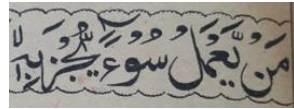 مَنۡ يَّعۡمَلۡ سُوۡٓءًا يُّجۡزَ بِهٖۙ لا